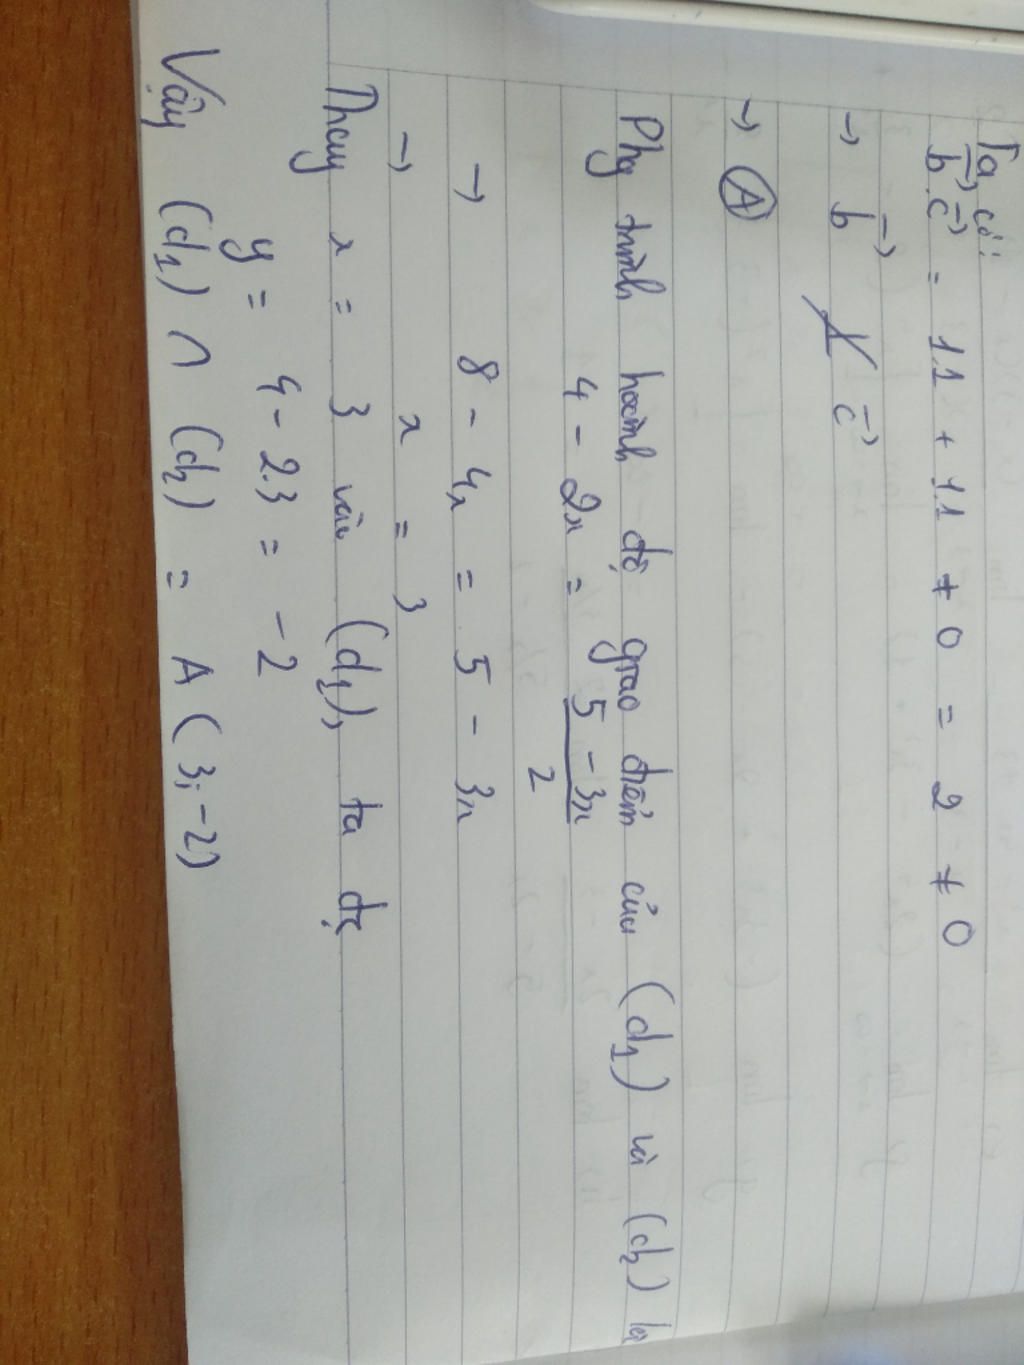 Ta có:
b⃗.c⃗ = 1.1 + 1.1 + 0 = 2 ≠ 0
→ b⃗ ⊥̸ c⃗
→ Ⓐ
Phg trình hoành độ giao điểm của (d₁) và (d₂) là
4 - 2x = (5 - 3x)/2
→ 8 - 4x = 5 - 3x
→ x = 3
Thay x = 3 vào (d₁), ta đc
y = 4 - 2.3 = -2
Vậy (d₁) ∩ (d₂) = A(3;-2)